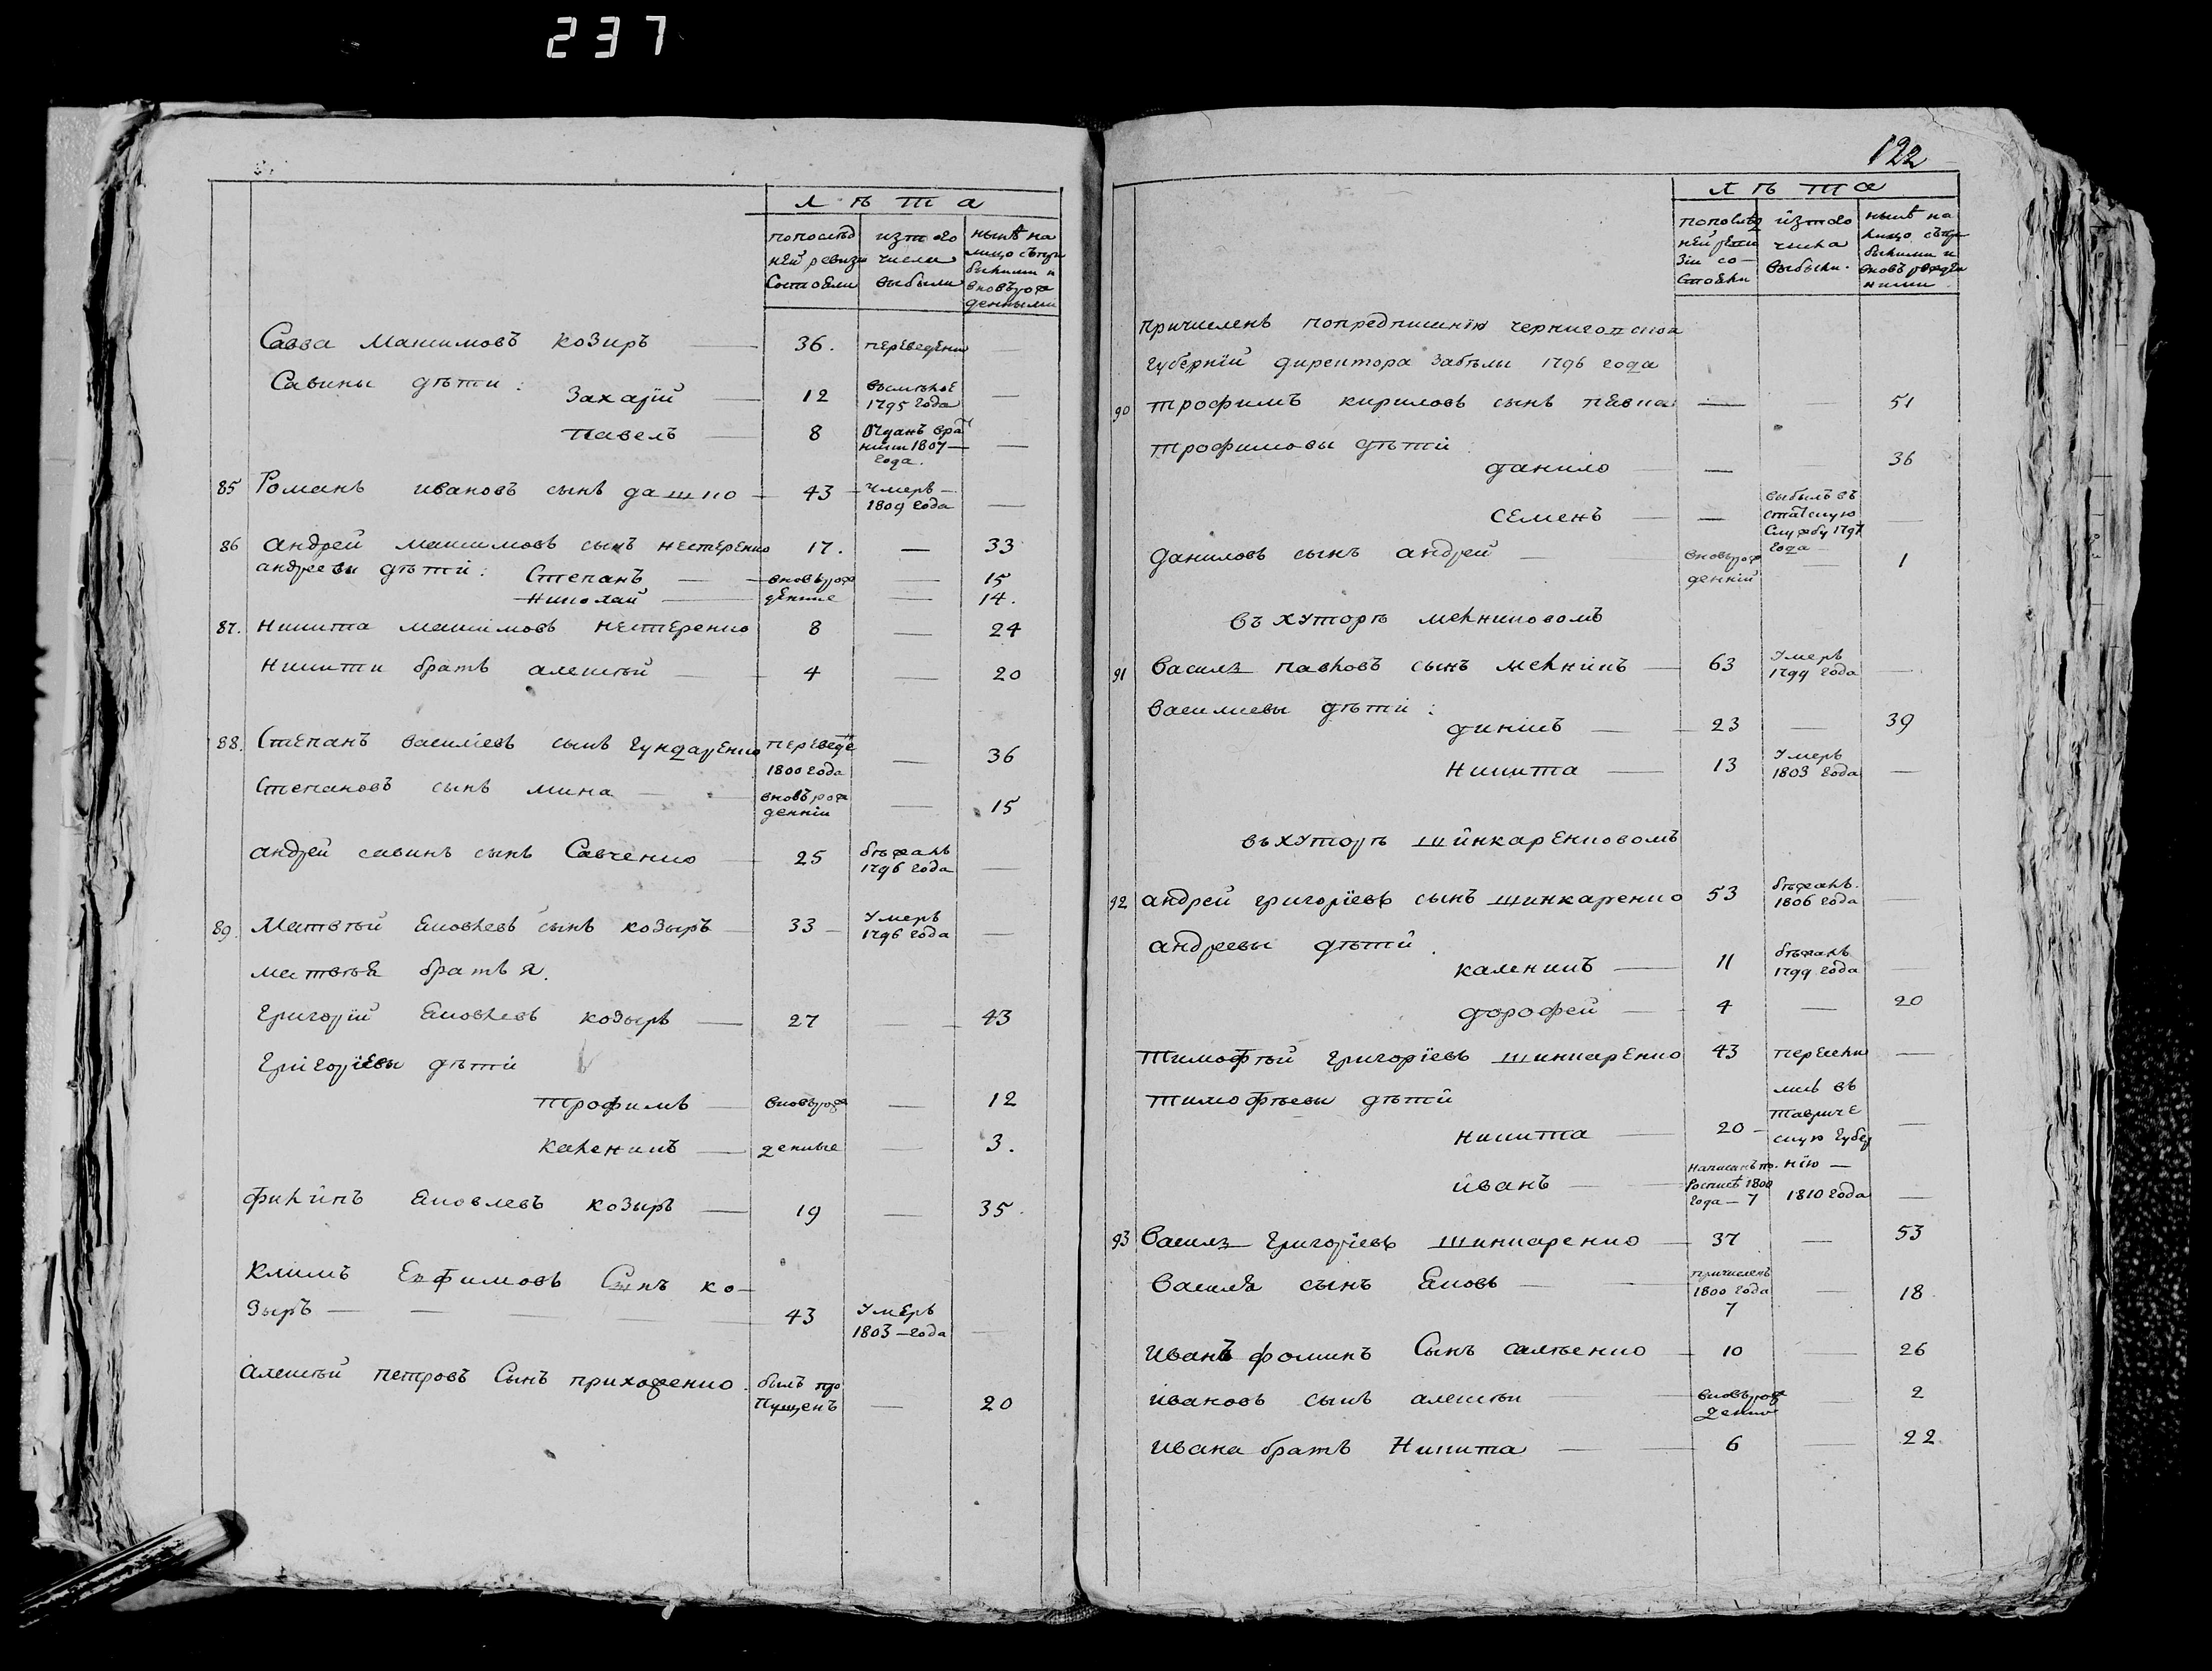 237
лѣта
попослѣд
ней ревизи
Состояли
изтого
числа
выбыли
нынѣ на
лицо съпри
былими и
вновърож
денными
Савва Максимовъ козиръ — 36. переведени —
Савины дѣти:
Захарїй — 12 —
1795 года
павелъ — 8 Отданъ —
1807 —
года.
85 Романъ ивановъ сынъ дашко — 43 — умеръ — —
1809 года
86 андрей максимовъ сынъ нестеренко 17. — 33
андреевы дѣти: Степанъ — — вновърож — 15
Николай — денные — 14.
87. никита максимовъ нестеренко 8 — 24
никити братъ алексѣй — — 4 — 20
88. Степанъ василїевъ сынъ гундаренко переведе — 36
1800 года
Степановъ сынъ мина — — вновърож — 15
деннїи
андрей савинъ сынъ Савченко — 25 бѣжалъ —
1796 года
89. Матвѣй Яковлевъ сынъ козыръ — 33 — Умеръ —
1796 года
матвѣя братья.
григорїй Яковлевъ козыръ — 27 — 43
григорїевы дѣти
трофимъ — вновърож — 12
каленикъ — денные — 3.
филипъ Яковлевъ козыръ — 19 — 35.
климъ Евфимовъ Сынъ ко-
зыръ — — — — 43 Умеръ —
1803 — года
алексѣй петровъ Сынъ приходенко. былъ про — 20
пущенъ
122
лѣта
попослѣд
ней реви
зіи со-
стояли
изтого
числа
выбыли.
нынѣ на
лицо съпри
былими и
вновърожден
ними
причисленъ попредписанїю чернигопской
губернїй директора Забѣлы 1796 года
90 трофимъ кириловъ сынъ — — 51
трофимовы дѣти
данило — — 36
Семенъ — — выбылъ въ —
статскую
Службу 1797
года —
Даниловъ сынъ андрей — вновърож — 1
деннїй
въ хуторѣ мелниковомъ
91 Василь павловъ сынъ мелникъ — 63 Умеръ —
1799 года
василиевы дѣти:
— 23 — 39
Никита — 13 Умеръ —
1803 года
въ хуторѣ шинкаренковомъ
92 андрей григорїевъ сынъ шинкаренко 53 бѣжалъ. —
1806 года
андреевы дѣти.
каленикъ — 11 бѣжалъ —
1799 года
дорофей — 4 — 20
тимофѣй григорїевъ шинкаренко 43 пересели —
лись въ
тимофѣевы дѣти
тавриче
никита — 20 — скую губер —
нїю —
иванъ — написанъ по
росписѣ 1800
года — 7 1810 года —
93 Василь григорїевъ шинкаренко — 37 — 53
Василя сынъ Яковъ — причисленъ — 18
1800 года
7
иванъ фоминъ Сынъ салѣенко — 10 — 26
ивановъ сынъ алексѣй — вновърож — 2
ивана братъ Никита — 6 — 22